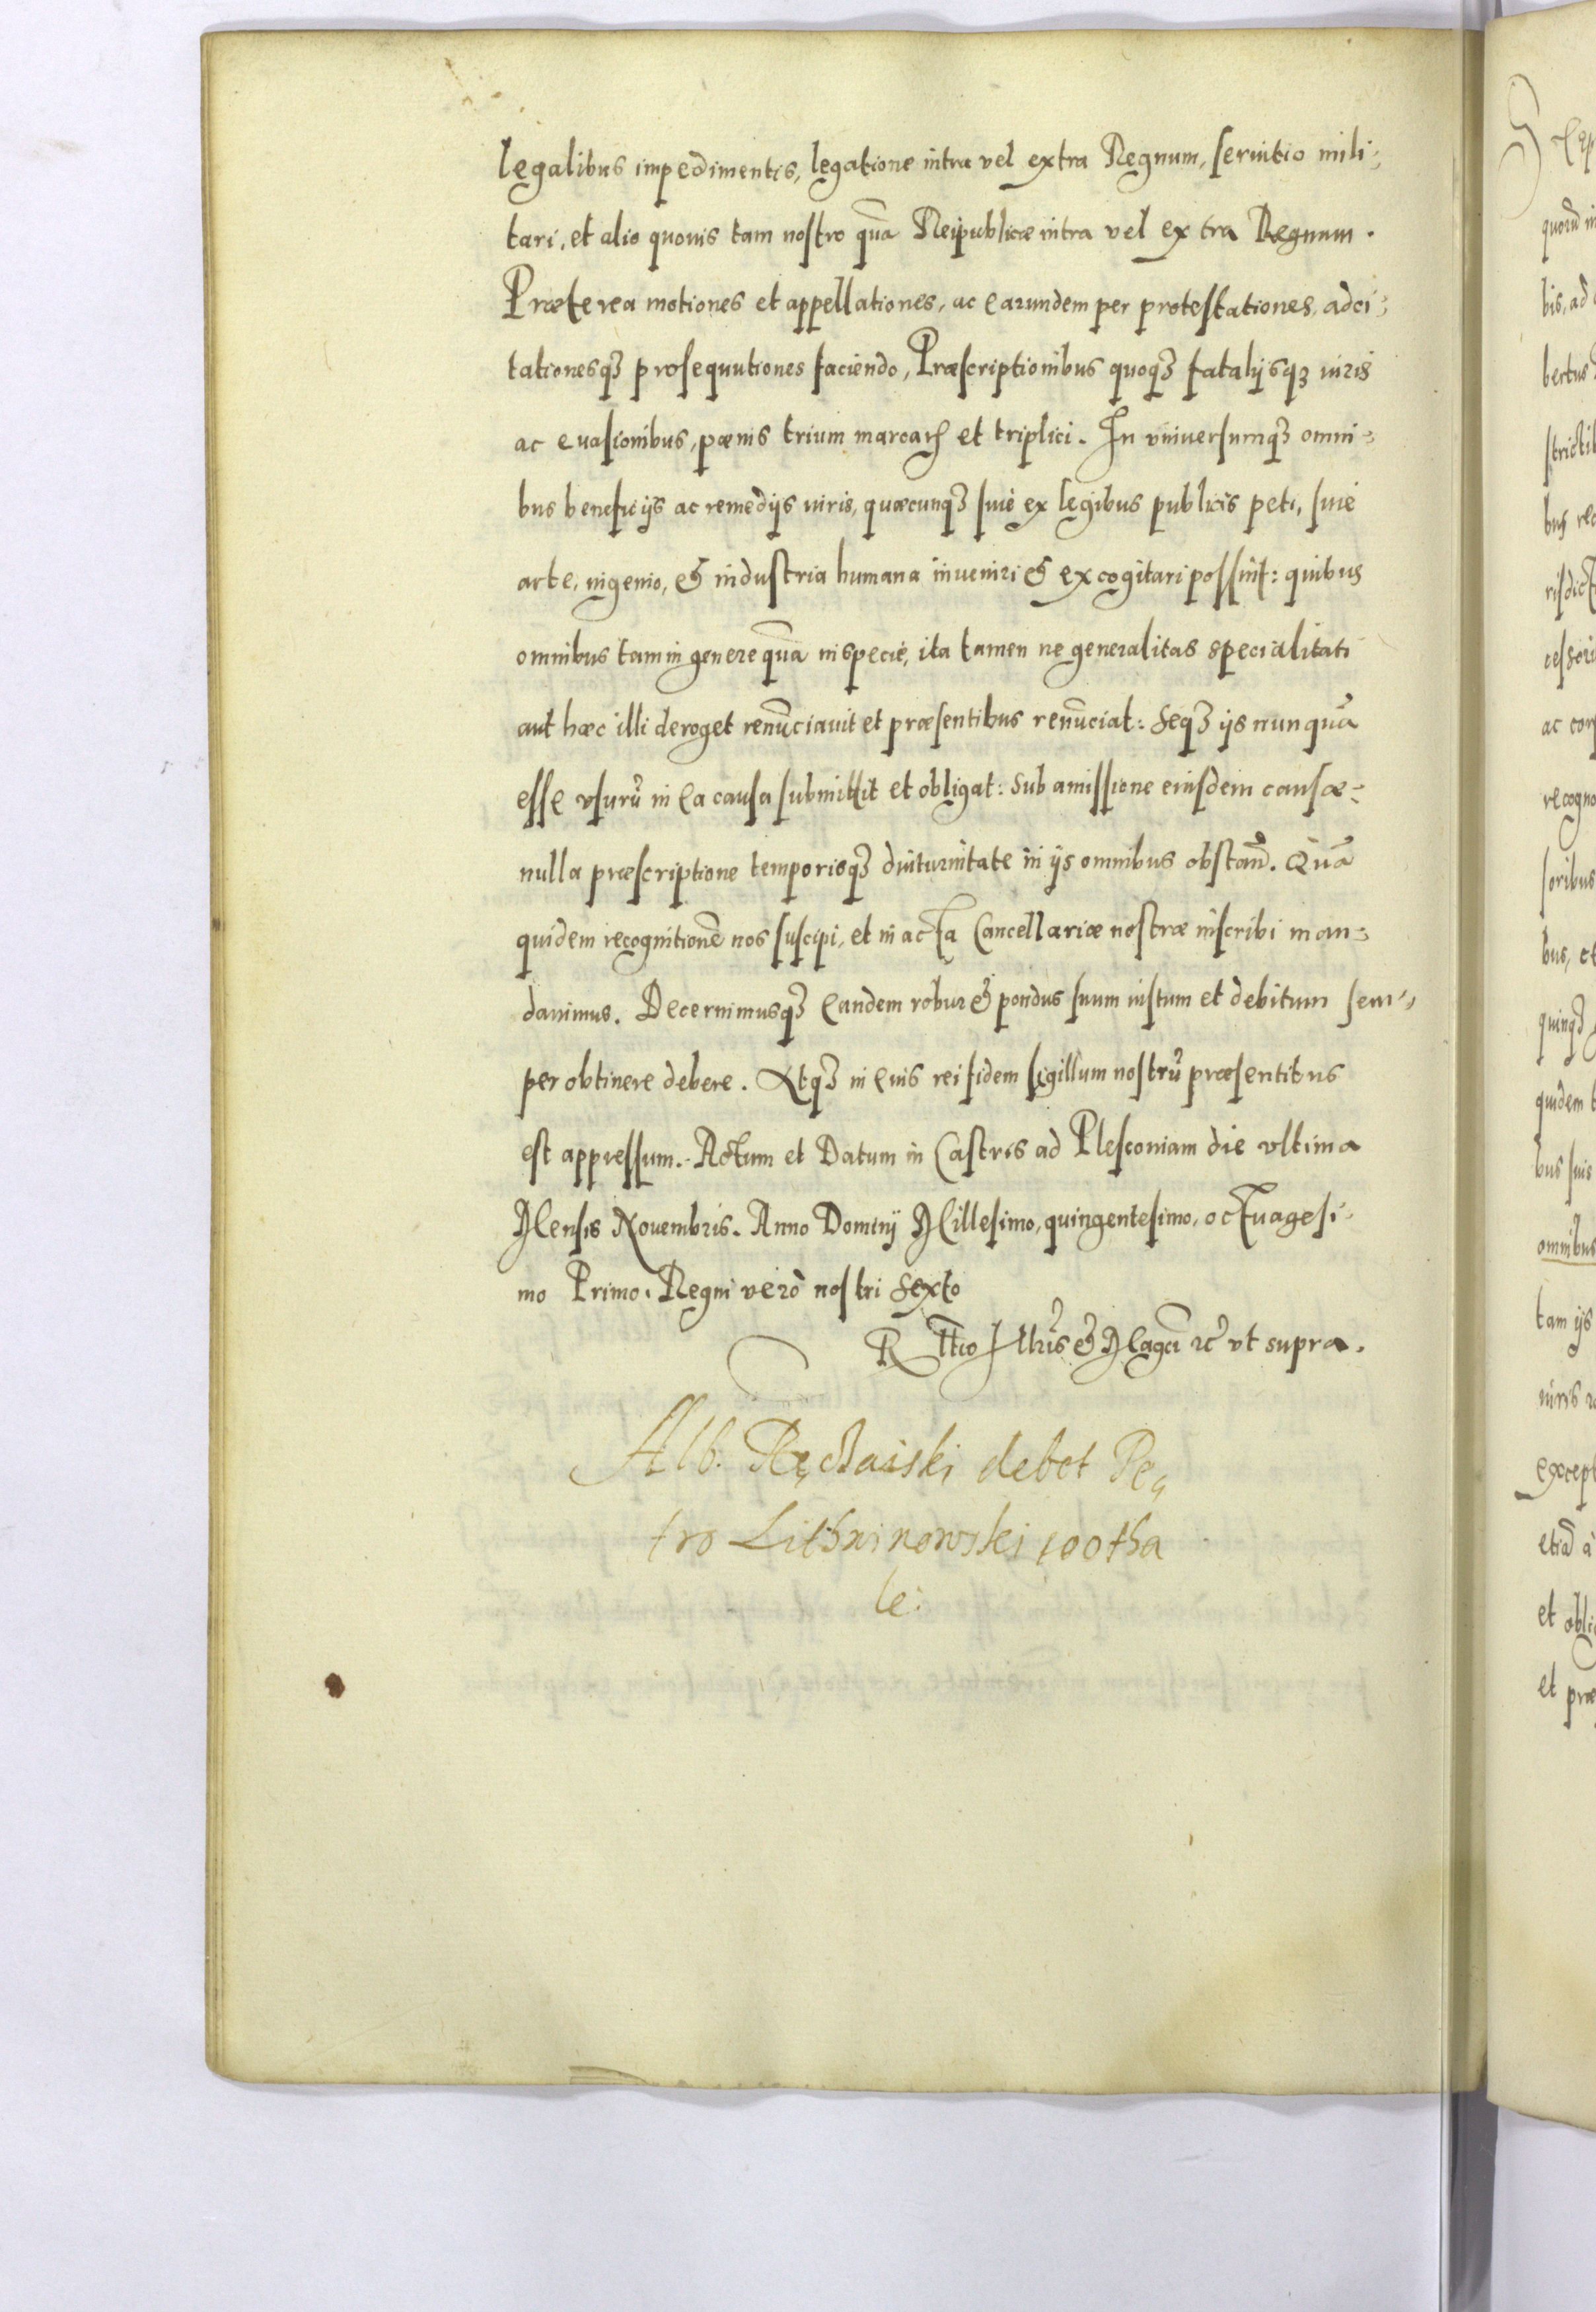 legalibus impedimentis, legatione intra vel extra Regnum, seruitio mili⸗
tari, et alio quouis tam nostro quā Reipublicæ intra vel extra Regnum.
Præterea motiones et appellationes, ac earundem per protestationes, adci⸗
tationesqꝫ prosequutiones faciendo, Præscriptionibus quoqꝫ fatalijsqꝫ iuris
ac euasionibus, pænis trium marcarꝝ et triplici. In vniuersumqꝫ omni⸗
bus beneficijs ac remedijs iuris, quæcunqꝫ siue ex legibus publicis peti, siue
arte, ingenio, & industria humana inueniri & excogitari possint: quibus
omnibus tam in genere quā in specie, ita tamen ne generalitas specialitati
aut hæc illi deroget renūciauit et præsentibus renūciat: Seqꝫ ijs nunquā
esse vsurū in ea causa submittit et obligat: Sub amissione eiusdem causæ⸗
nulla præscriptione temporisqꝫ diuturnitate in ijs omnibus obstan̄. Quā
quidem recognitionē nos suscipi, et in acta Cancellariæ nostræ inscribi man⸗
dauimus. Decernimusqꝫ eandem robur & pondus suum iustum et debitum sem⸗
per obtinere debere. Atqꝫ in eius rei fidem sigillum nostrū præsentibus
est appressum. Actum et Datum in Castris ad Plesconiam die vltima
Mensis Nouembris. Anno Dominij Millesimo, quingentesimo, octuagesi⸗
mo Primo. Regni verò nostri Sexto
R ltio Illris & Magci ꝛc vt supra.
Alb. debet Pe⸗
tro Lithxinowski 100 tha
le: